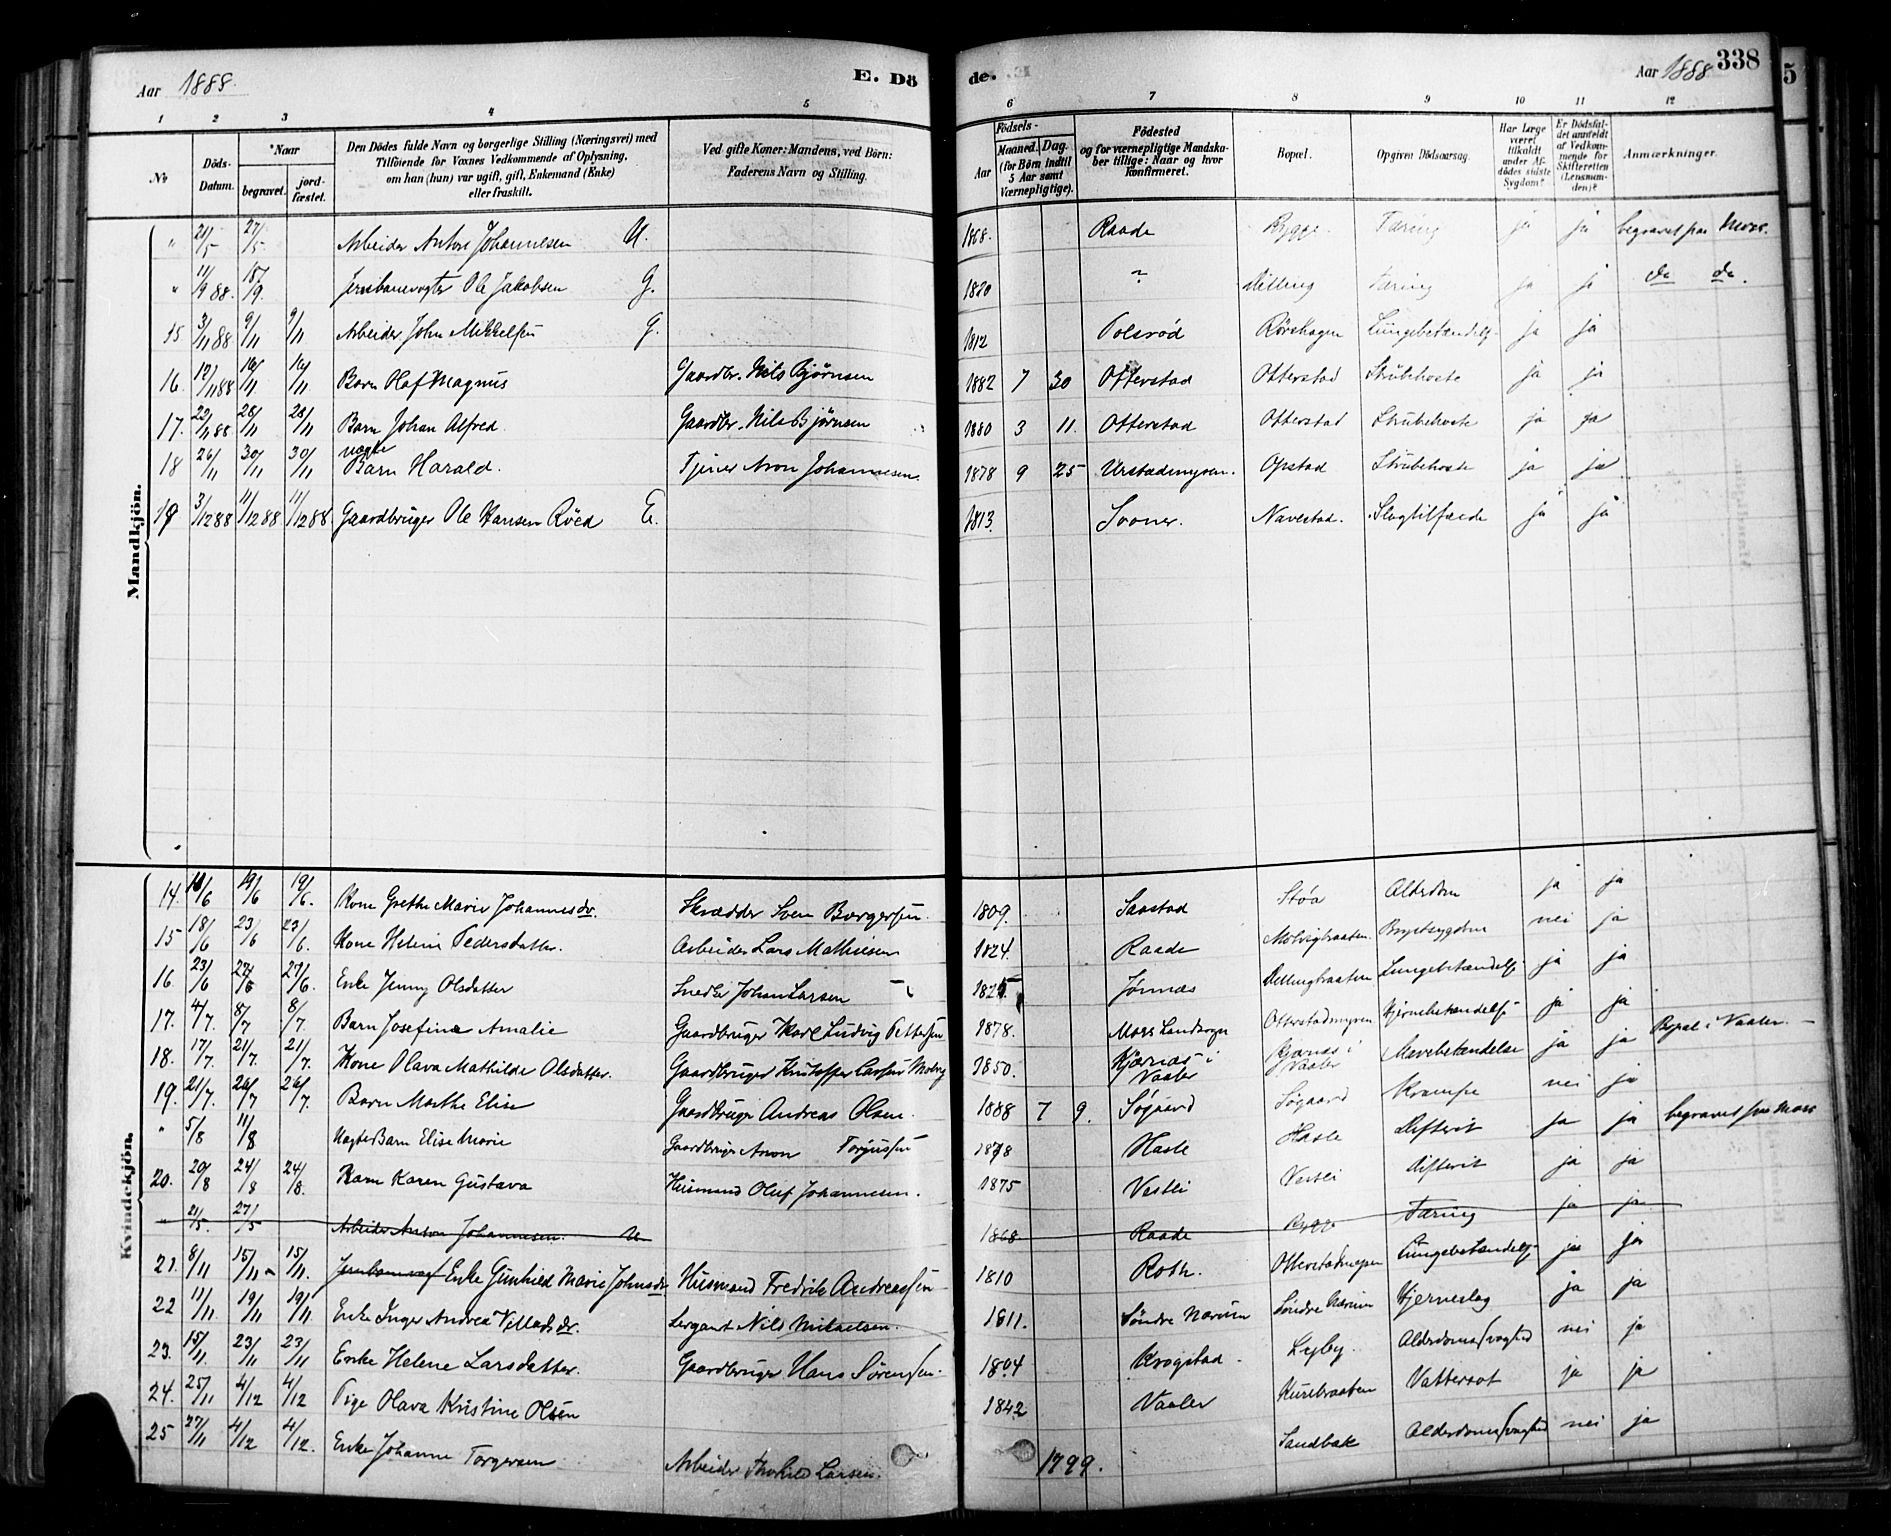 Aar 1888. E. Dö de. Aar 1888 338
1 2 3 4 5 6 7 8 9 10 11 12
No
Döds-Datum.
Naar
begravet.
jord-fæstet.
Den Dödes fulde Navn og borgerlige Stilling (Næringsvei) med
Tilföiende for Voxnes Vedkommende af Oplysning,
om han (hun) var ugift, gift, Enkemand (Enke)
eller fraskilt.
Ved gifte Koner: Mandens, ved Börn:
Faderens Navn og Stilling.
Födsels-
Aar
Maaned. Dag.
(for Börn indtil
5 Aar samt
Værnepligtige).
Födested
og for værnepligtige Mandska-
ber tillige: Naar og hvor
konfirmeret.
Bopæl.
Opgiven Dödsaarsag.
Har Læge
været
tilkaldt
under Af-
dödes sidste
Sygdom?
Er Dödsfal-
det anmeldt
af Vedkom-
mende for
Skifteretten
(Lensman-
den)?
Anmærkninger.
Mandkjön.
" 21/5 27/5 Arbeider Anton Johannesen U. 1868. Raade Rygge Tæring ja ja begravet paa Moss.
" 11/9 88. 18/9. Jernbanevogter Ole Jakobsen G. 1820 " Dilling Tæring ja ja do do.
15 3/11 88 9/11 9/11 Arbeider John Mikkelsen G. 1812 Tolsröd Rörshagen Lungebetændelse ja ja
16. 12/11 88 16/11 16/11 Barn Olaf Magnus Gaardbr. Nils Bjørnsen 1882 7 30 Otterstad Otterstad Strubehoste ja ja
17. 88 28/11 28/11 Barn Johan Alfred Gaardbr. Nils Bjørnsen 1880 3 11. Otterstad Otterstad Strubehoste ja ja
18 26/11 30/11 30/11 uægte Barn Harald. Tjener Aron Johannesen 1878 9 25 Opstad Strubehoste ja ja
19 3/12 88 11/12 88 11/12 88. Gaardbruger Ole Hansen Röed E. 1813. Navestad. Slagtilfælde ja ja
Kvindekjön.
14. /6 19/6 19/6. Kone Grethe Marie Johannesdr. Skrædder Sven Borgersen 1809. Saastad Stöa Alderdom ja ja
15 18/6 23/6 23/6. Kone Helene Pedersdatter. Arbeider Lars Mathiesen 1824. Raade Brystsygdom nei ja
16. 23/6 27/6 27/6. Enke Jenny Olsdatter Snedker Johan Larsen 1825 Jönnæs Lungebetændelse ja ja
17. 4/7. 8/7 8/7. Barn Josefine Amalie Gaardbruger Karl Ludvig Pettersen 1878. Moss Landsogn Otterstadmyren Hjernebetændelse ja ja
18. 17/7 21/7. 21/7. Kone Olava Mathilde Olsdatter. Gaardbruger Kristoffer Larsen 1850. Kjærnæs i Vaaler Kjærnæs i Vaaler Mavebetændelse ja ja Bopæl i Vaaler.
19. 21/7. 26/7 26/7. Barn Marthe Elise Gaardbruger Andreas Olsen. 1888 7 9. Sögaard Sögaard Krampe nei ja
" 5/8 11/8 Uægte Barn Elise Marie Gaardbruger Aron Torgussen 1878 Hasle Hasle Difterit ja ja begravet paa Moss
20. 20/8 24/8 24/8. Barn Karen Gustava Husmand Oluf Johannesen. 1875 Vestli Vestli Difterit ja ja
" 21/5. 27/5 Arbeider Anton Johannesen. U 1868 Raade Rygge Tæring ja ja
21. 8/11 15/11 15/11. Enke Gunhild Marie Johnsdr Husmand Fredrik Andreassen 1810 Roth. Lungebetændelse ja ja
22 11/11 19/11 19/11 Enke Inger Andrea Villadsdr. Sergant Nils Mikaelsen. 1811. Söndre Nærum Söndre Nærum Hjerneslag ja ja
23. 15/11. 23/11 23/11 Enke Helene Larsdatter. Gaardbruger Hans Sörensen. 1804 Krogstad. Lyby. Alderdomssvaghed nei ja
24. 25/11 4/12 4/12 Pige Olava Kristine Olsen 1842 Vaaler Vattersot ja ja
25 27/11 4/12 4/12. Enke Johanne Torgersen Arbeider Thorkild Larsen. 1799. Sandbæk Alderdomssvaghed nei ja